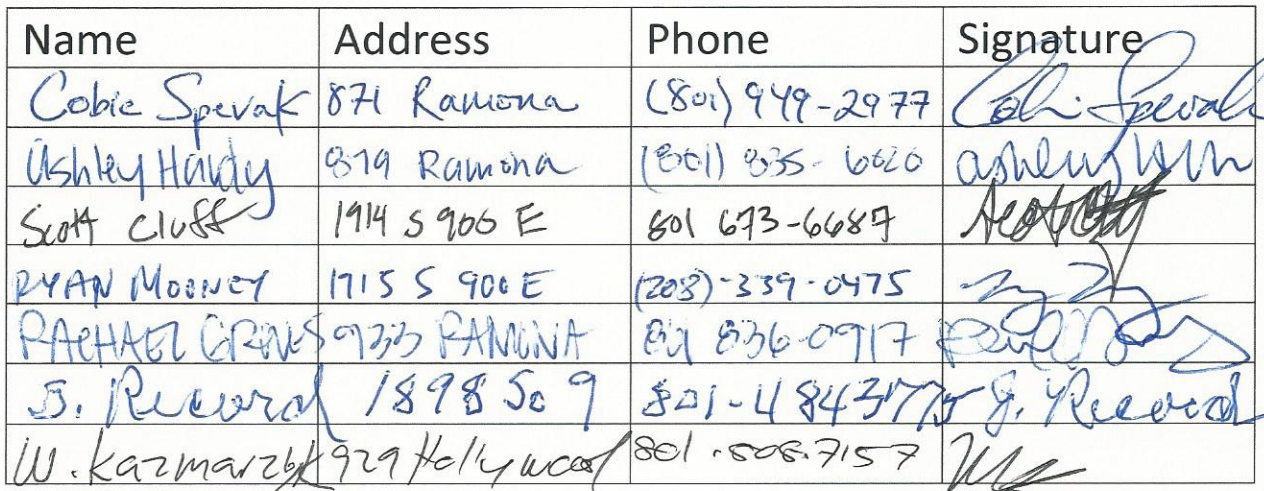 Name Address Phone Signature
Cobie Spevak 871 Ramona (801) 949-2977
Ashley Hardy 879 Ramona (801) 835-6020
Scott Cluff 1914 S 900 E 801 673-6687
RYAN MOONEY 1715 S 900 E (208)-339-0475
RACHAEL 933 RAMONA 801 836-0917
J. Record 1898 So 9 801-484 J. Record
W. Kazmarzyk 929 Hollywood 801.808.7157